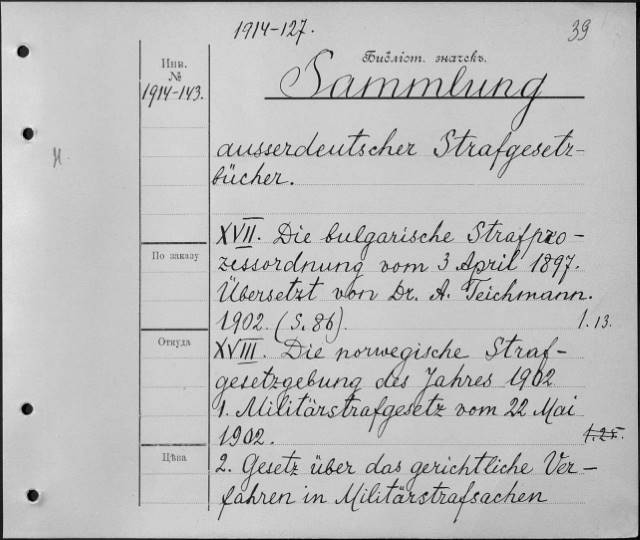 1914-127.
39
Библіот. значекъ.
Инв.
№
1914-143.
Sammlung
ausserdeutscher Strafgesetz-
bücher.
XVII. Die bulgarische Strafpro-
По заказу
zessordnung vom 3 April 1897.
Übersetzt von Dr. A. Teichmann.
1902. (S. 86). 1.13.
Откуда
XVIII. Die norwegische Straf-
gesetzgebung des Jahres 1902
1. Militärstrafgesetz vom 22 Mai
1902. 1.25.
Цѣна
2. Gesetz über das gerichtliche Ver-
fahren in Militärstrafsachen